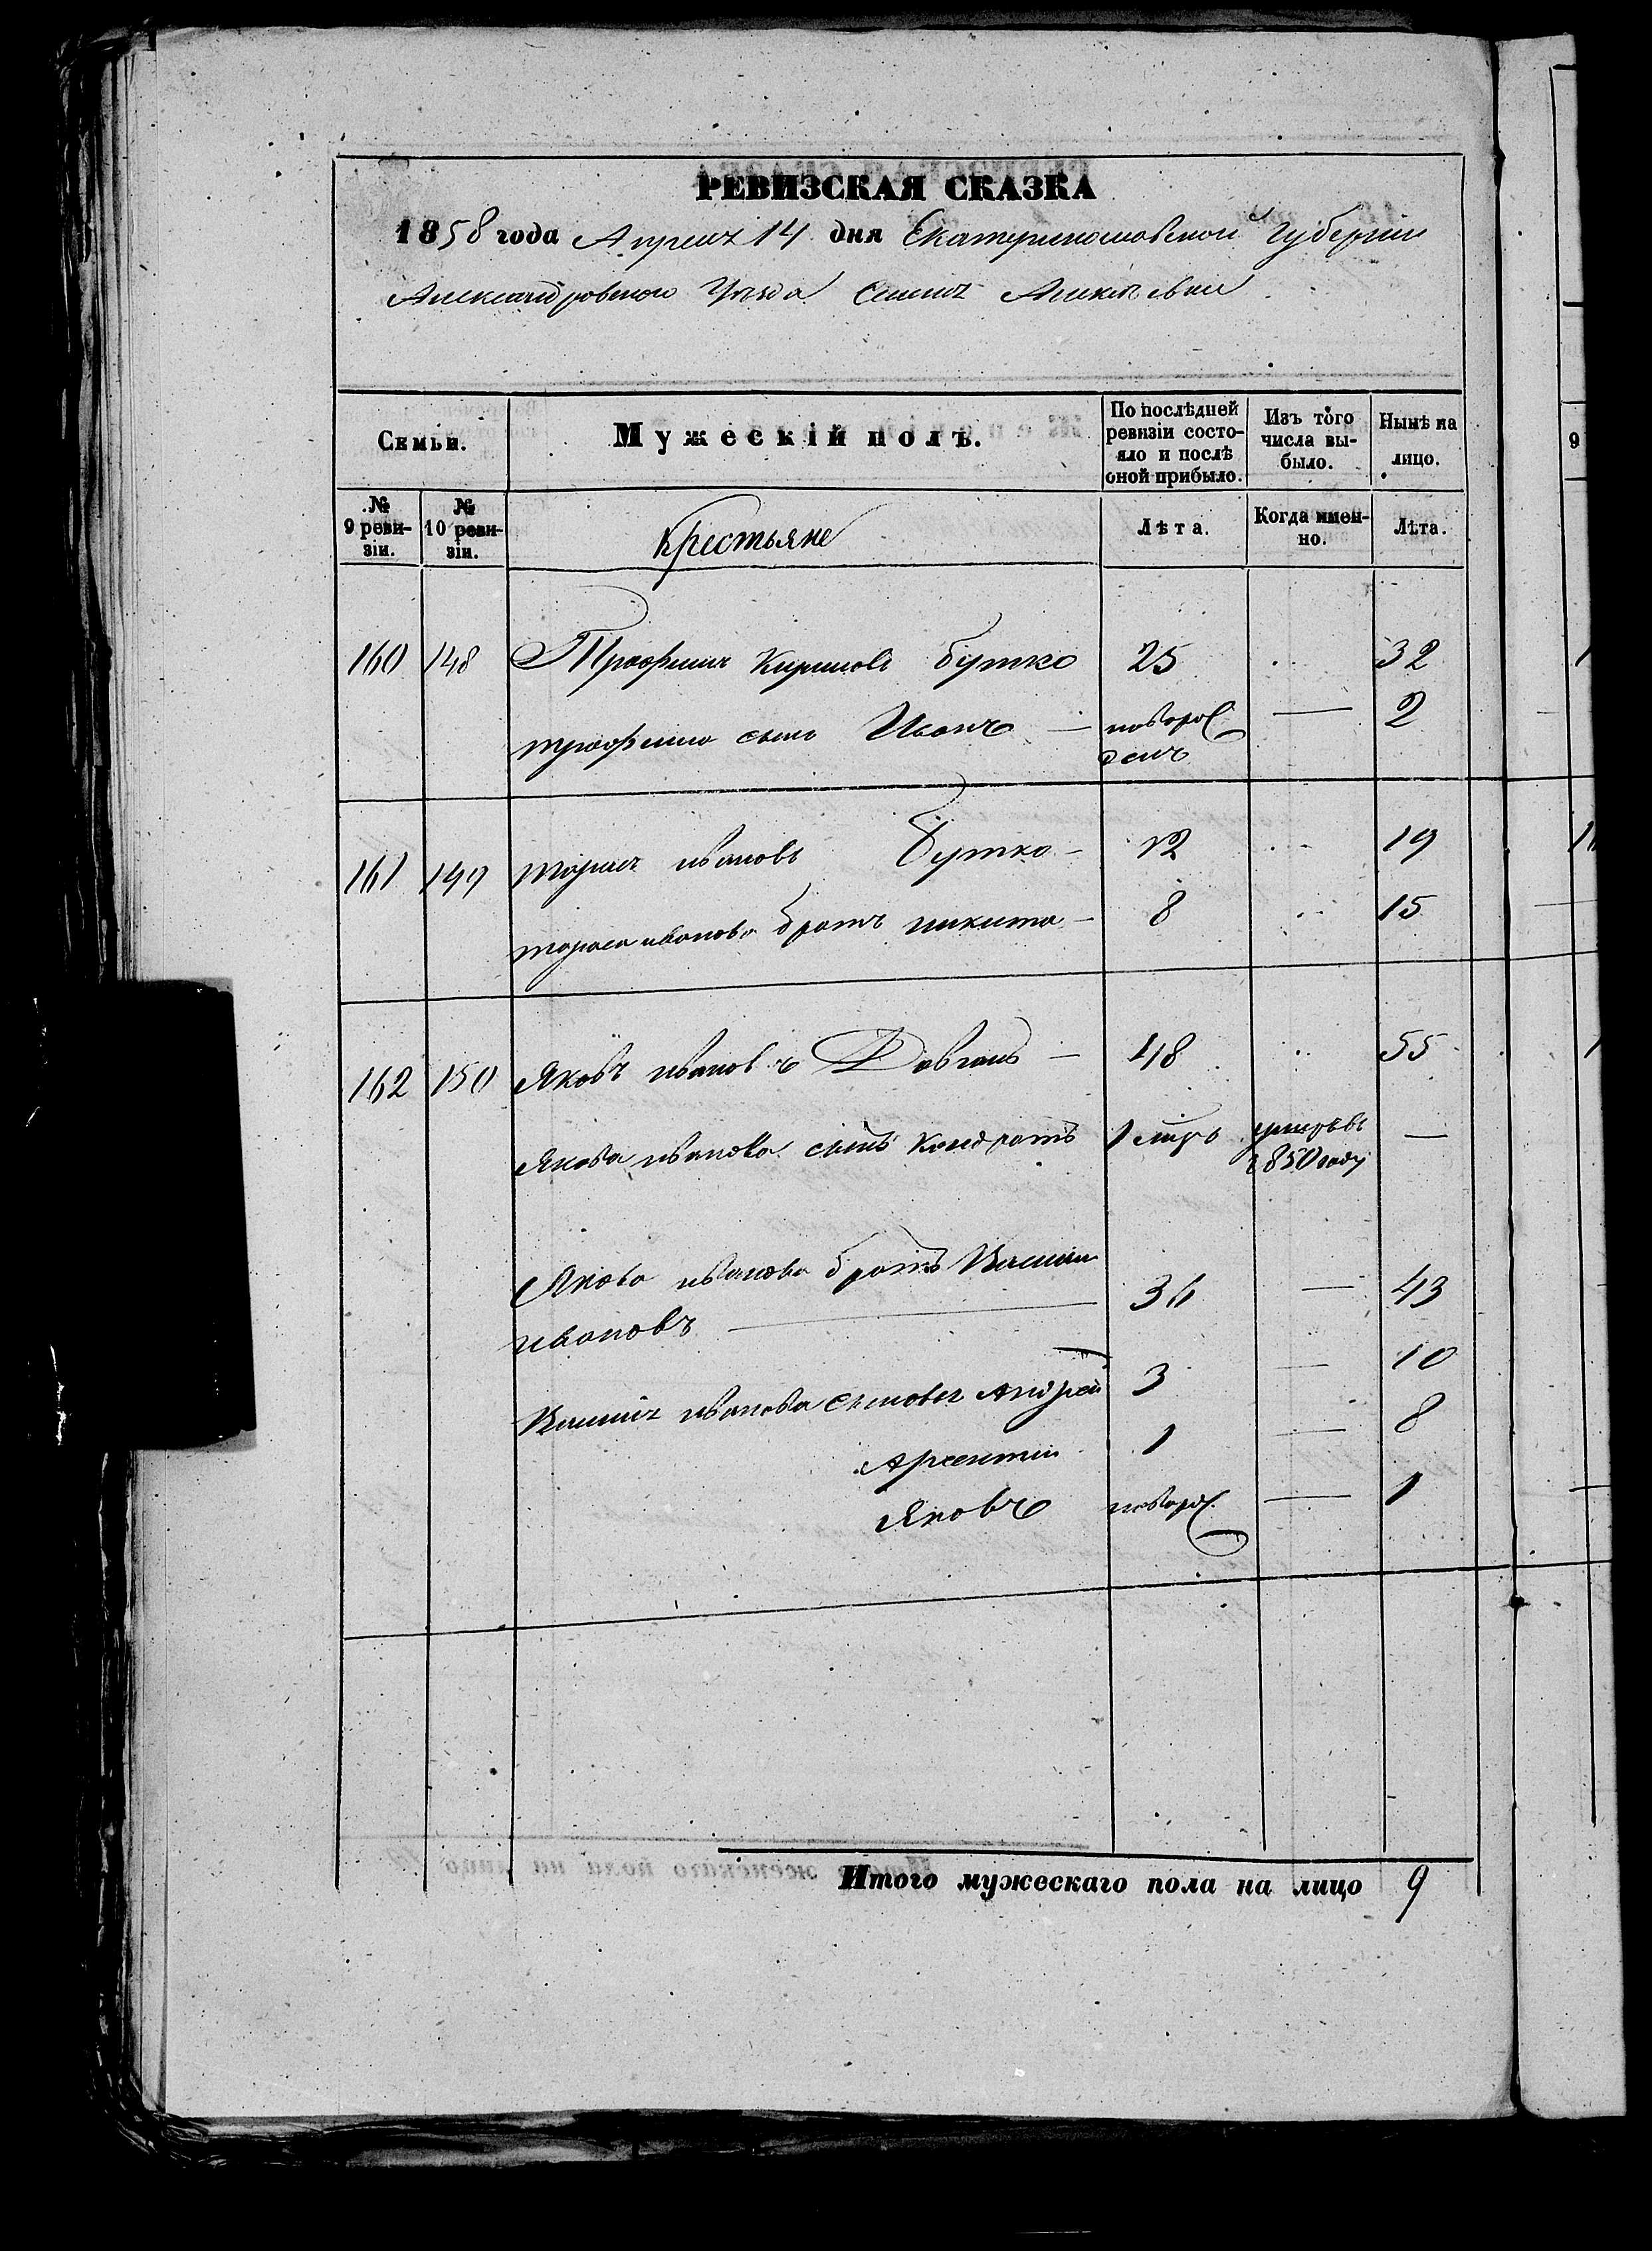 РЕВИЗСКАЯ СКАЗКА
1858 года Апреля 14 дня Екатеринославской Губернiи
Александровского Уѣзда Селенiя Алексѣевки
Семьи.
Мужескiй полъ.
По послѣдней ревизiи состояло и послѣ оной прибыло.
Изъ того числа выбыло.
Нынѣ на лицо.
№ 9 ревизiи.
№ 10 ревизiи.
Крестьяне
Лѣта.
Когда именно.
Лѣта.
160 148 Трофимъ Кириловъ Бутко 25 32
трофима сынъ Иванъ — новорожденъ — 2
161 149 тарасъ ивановъ Бутко — 12 19
тараса иванова братъ никита — 8 15
162 150 Яковъ ивановъ Довгань — 48 55
Якова иванова сынъ Кондратъ умеръ в 1850 году —
Якова иванова братъ Василий
ивановъ — 36 — 43
Василия иванова сыновья Андрей 3 — 10
Арсентий 1 — 8
Яковъ новорож. — 1
Итого мужескаго пола на лицо 9
9